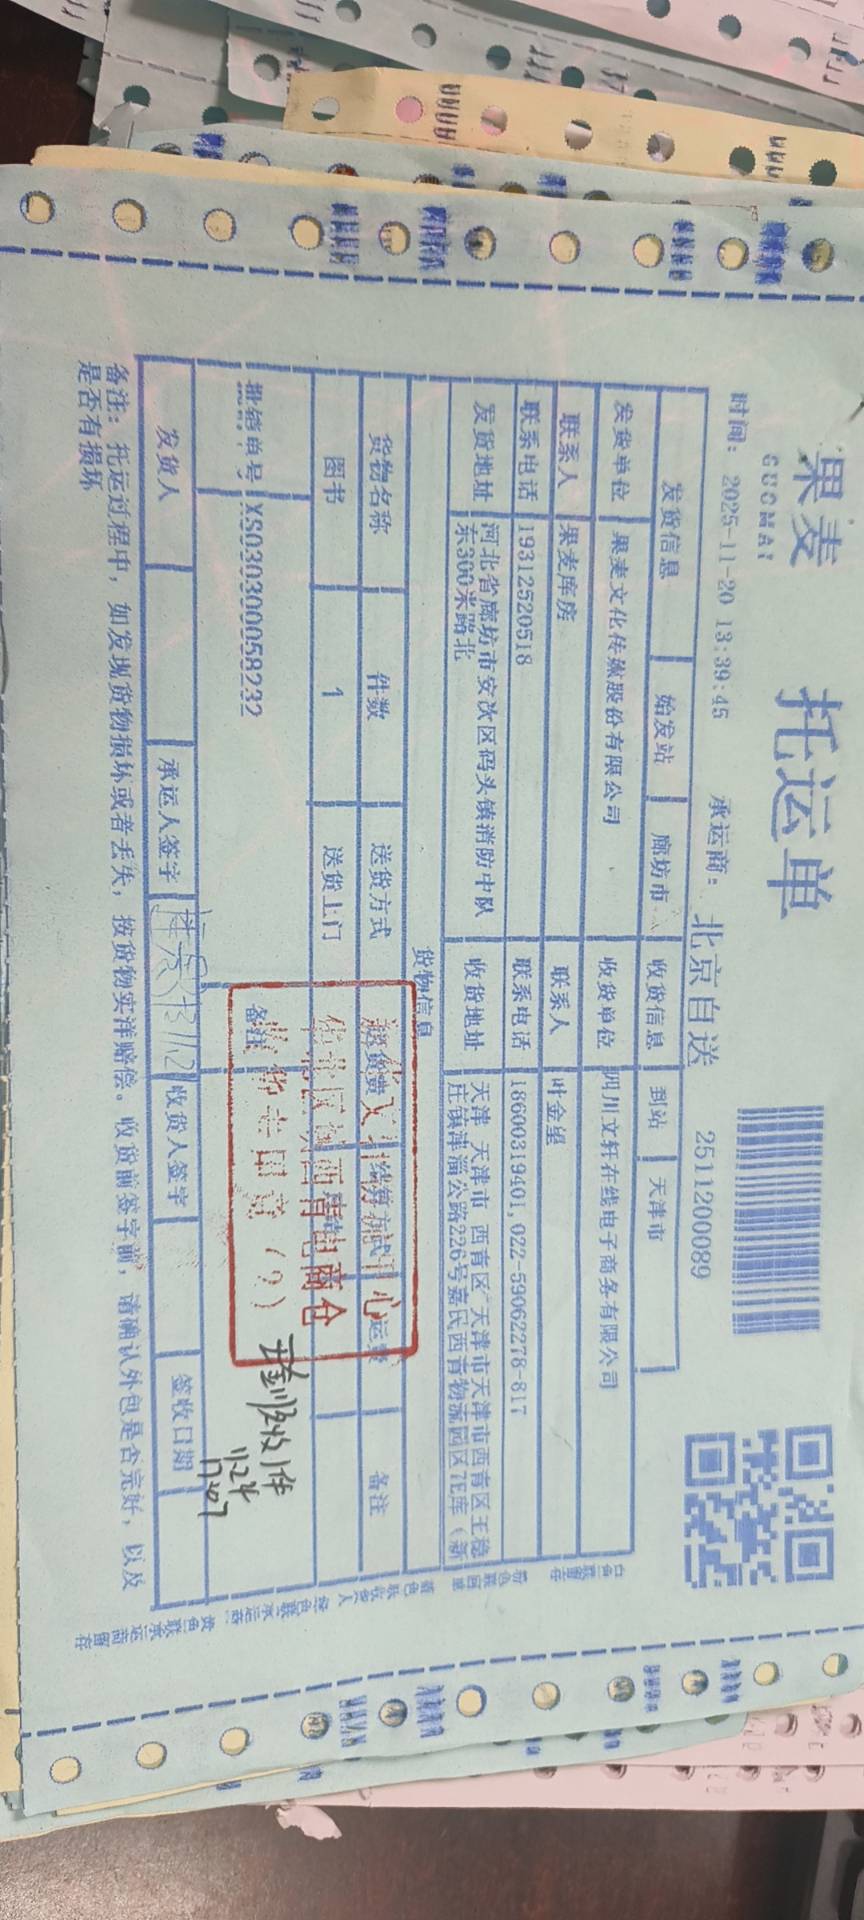 果麦
GUOMAI
托运单
时间: 2025-11-20 13:39:45 承运商: 北京自送 2511200089
发货信息 始发站 廊坊市 收货信息 到站 天津市
发货单位 果麦文化传媒股份有限公司 收货单位 四川文轩在线电子商务有限公司
联系人 果麦库房 联系人 叶金星
联系电话 19312520518 联系电话 18600319401,022-59062278-817
发货地址 河北省廊坊市安次区码头镇消防中队东300米路北 收货地址 天津 天津市 西青区 天津市天津市西青区王稳庄镇津淄公路226号嘉民西青物流园区7E库（新
货物信息
货物名称 件数 送货方式 结算方式 运费 备注
图书 1 送货上门
批销单号 XS030300058232 备注
华北区域西青电商仓
收货专用章（2）
11.24
发货人 承运人签字 收货人签字 签收日期
备注: 托运过程中，如发现货物损坏或者丢失，按货物实洋赔偿。收货前签字前，请确认外包是否完好，以及
是否有损坏
白色联留存
粉色联回单
蓝色联收货人
绿色联承运商
黄色联承运商留存